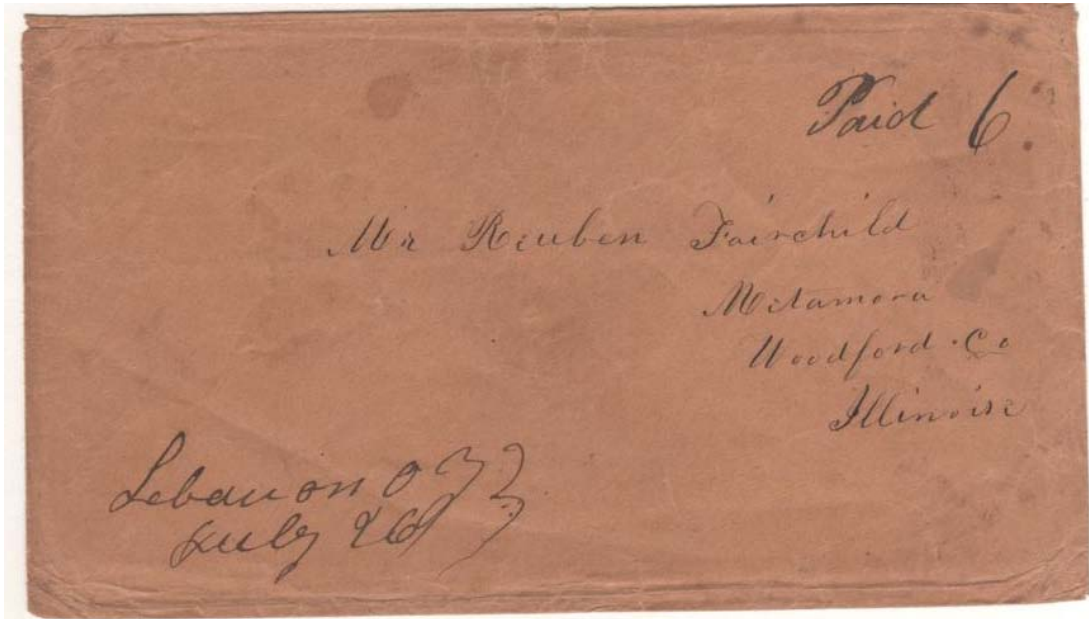 Paid 6
Mr Reuben Fairchild
Metamora
Woodford. Co
Illinois
Lebanon O
July 26